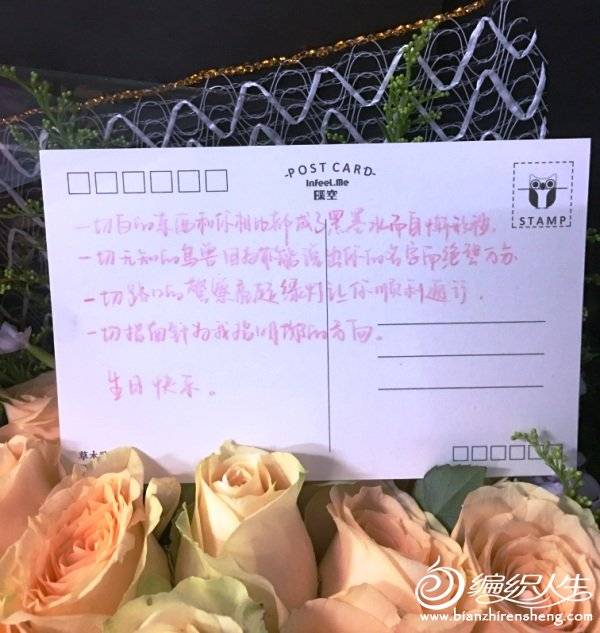 POST CARD
InFeeL.Me
STAMP
一切白的东西和你相比都成了黑墨水而自惭形秽，
一切无知的鸟兽因为不能说出你的名字而绝望万分，
一切路口的警察亮起绿灯让你顺利通行，
一切指南针为我指明你的方向。
生日快乐。
草木
编织人生
www.bianzhirensheng.com